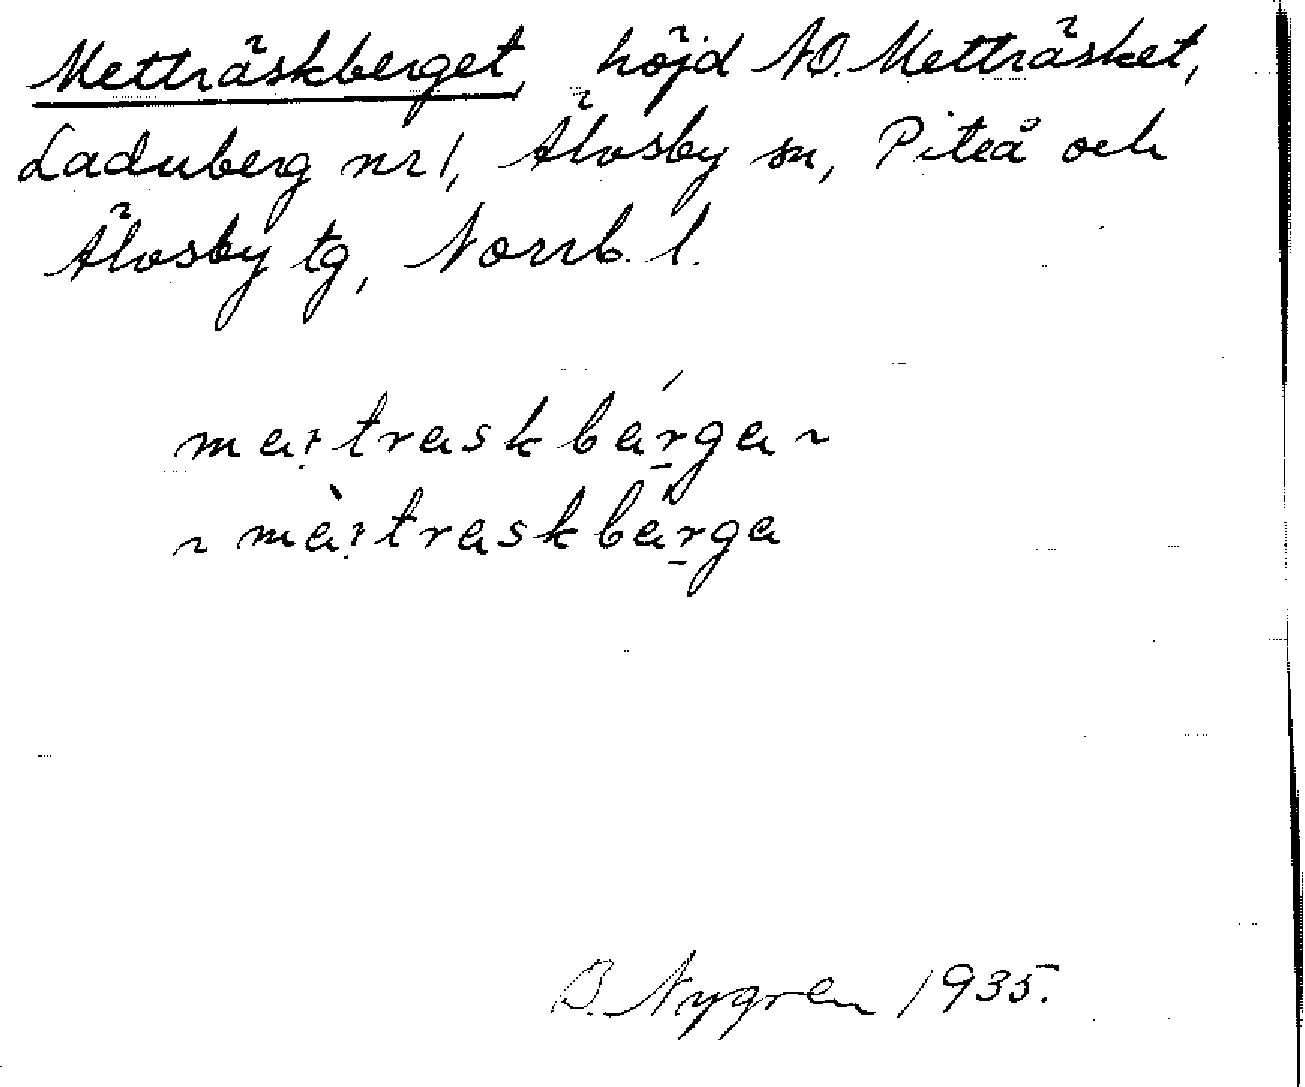 Metträskberget, höjd NO. Metträsket,
Laduberg nr 1, Älvsby sn, Piteå och
Älvsby tg, Norrb. l.
maıtraskbárga ~
~ màıtraskbárga
B. Nygren 1935.